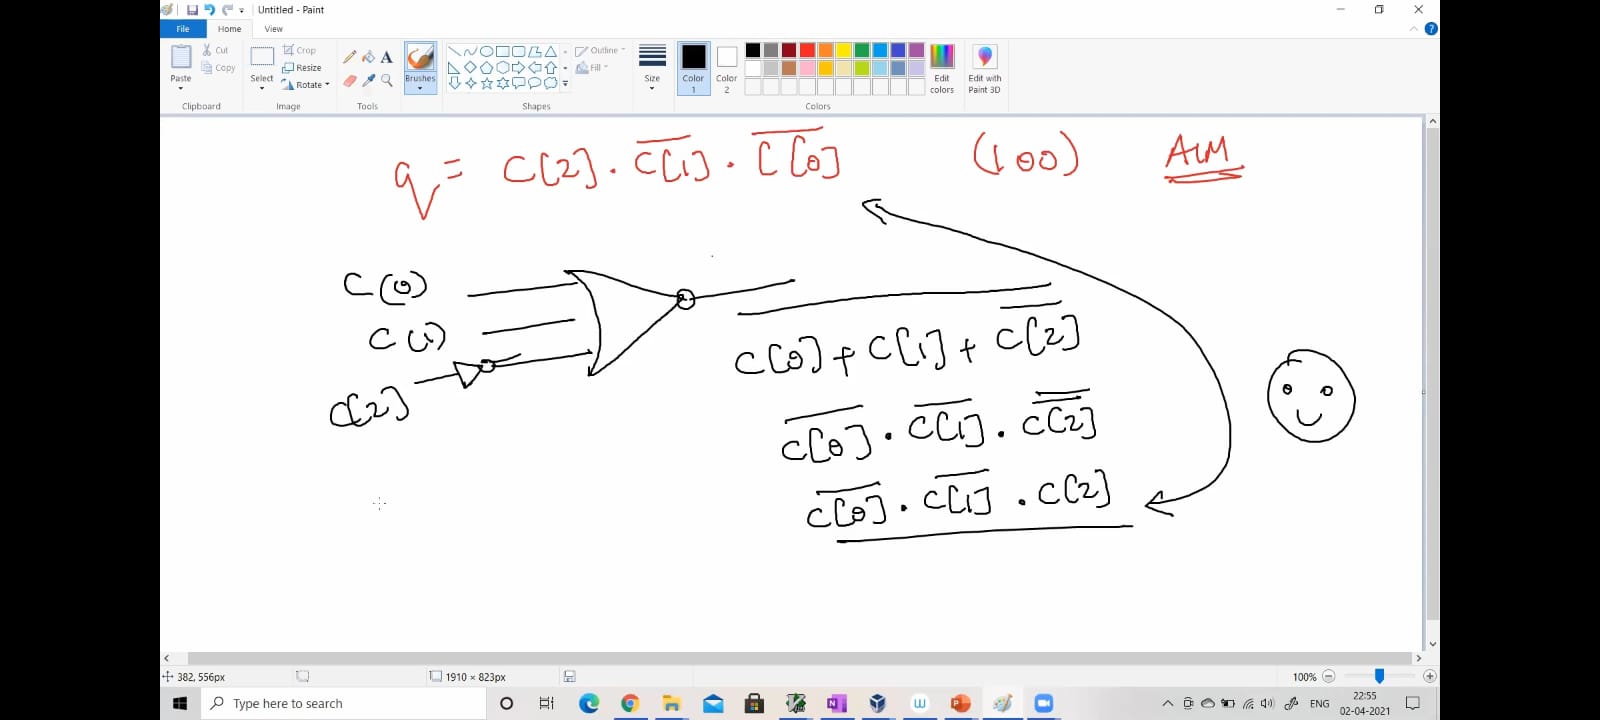 Untitled - Paint
File Home View
Cut
Copy
Paste
Clipboard
Crop
Resize
Rotate
Select
Image
A
Tools
Brushes
Outline
Fill
Shapes
Size
Color 1
Color 2
Edit colors
Edit with Paint 3D
Colors
q = C[2] . C̅[̅1̅]̅ . C̅[̅0̅]̅ (100) AIM
C(0)
C(1)
C[2]
C[0] + C[1] + C̅[̅2̅]̅
C̅[̅0̅]̅ . C̅[̅1̅]̅ . C̿[̿2̿]̿
C̅[̅0̅]̅ . C̅[̅1̅]̅ . C[2]
382, 556px
1910 × 823px
100%
Type here to search
ENG
22:55
02-04-2021